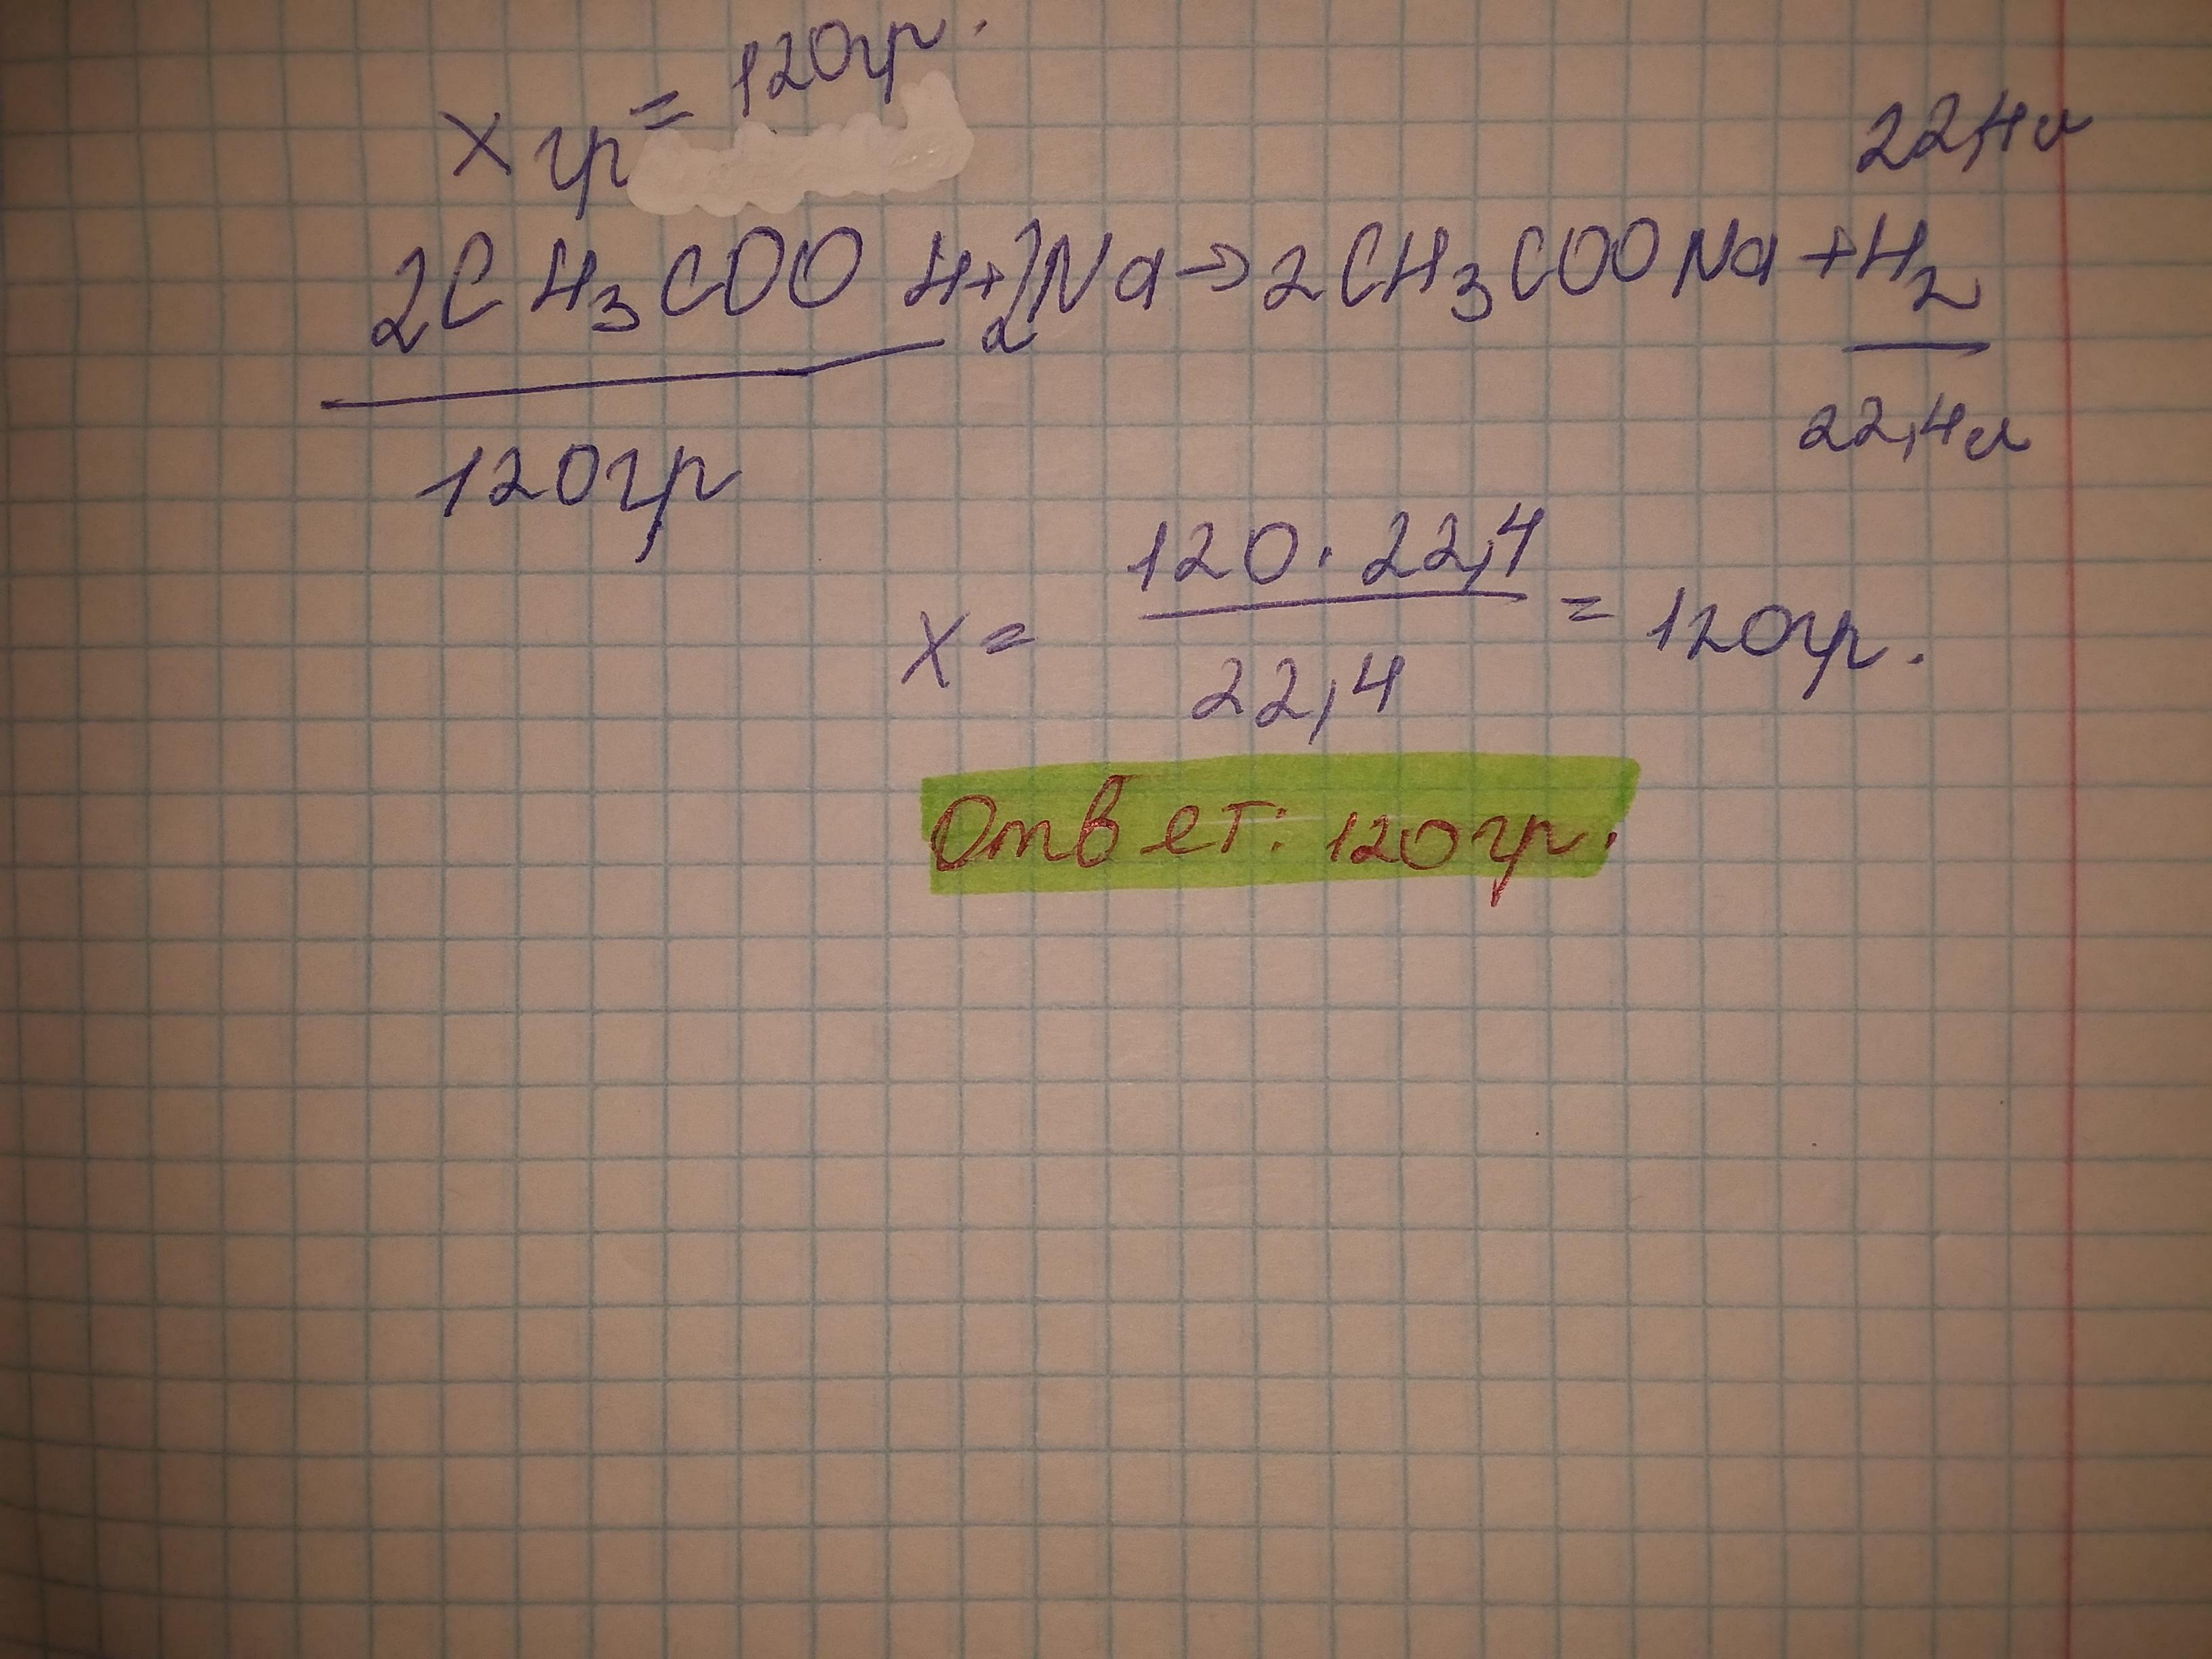 x гр = 120гр.
22,4л
2CH₃COOH+2Na→2CH₃COONa+H₂
120гр
22,4л
x = 120·22,4 / 22,4 = 120гр.
Ответ: 120гр.